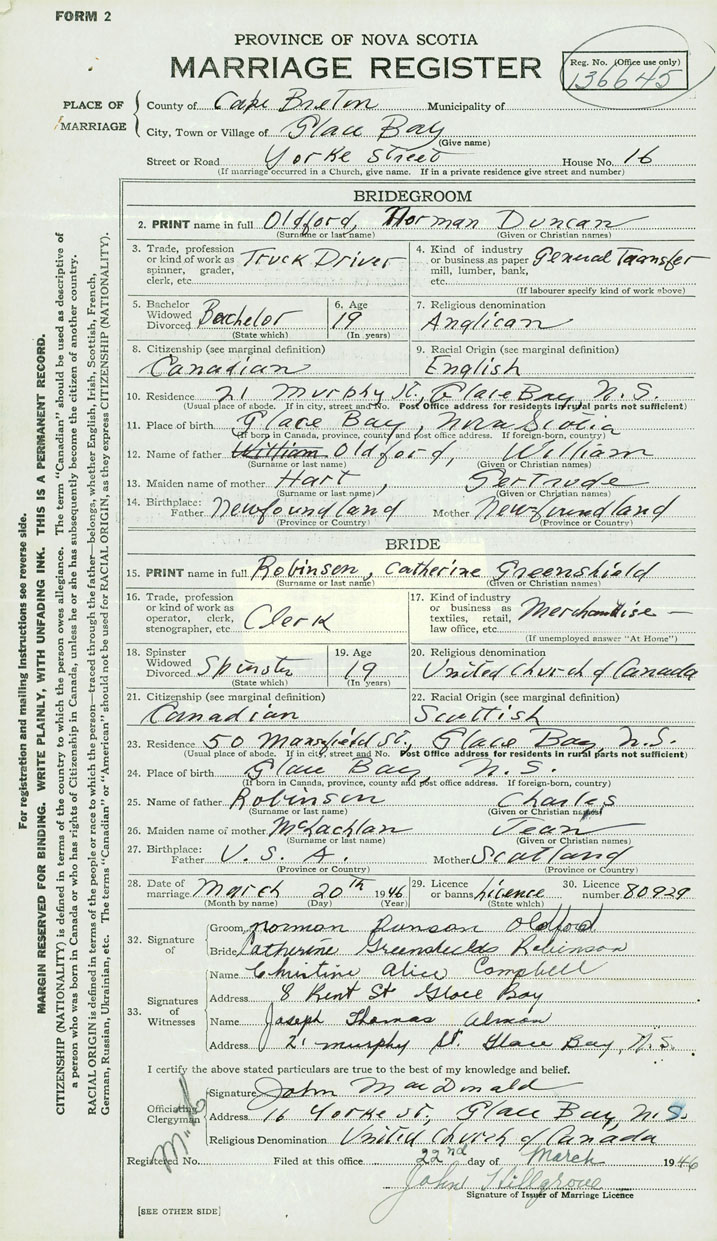 FORM 2
PROVINCE OF NOVA SCOTIA
MARRIAGE REGISTER
Reg. No. (Office use only)
136645
PLACE OF MARRIAGE
County of Cape Breton Municipality of
City, Town or Village of Glace Bay
(Give name)
Street or Road Yorke Street House No. 16
(If marriage occurred in a Church, give name. If in a private residence give street and number)
BRIDEGROOM
2. PRINT name in full Oldford, Norman Duncan
(Surname or last name) (Given or Christian names)
3. Trade, profession or kind of work as spinner, grader, clerk, etc. Truck Driver
4. Kind of industry or business as paper mill, lumber, bank, etc. General Transfer
(If labourer specify kind of work above)
5. Bachelor Widowed Divorced Bachelor
(State which)
6. Age 19
(In years)
7. Religious denomination
Anglican
8. Citizenship (see marginal definition)
Canadian
9. Racial Origin (see marginal definition)
English
10. Residence 21 Murphy St., Glace Bay, N.S.
(Usual place of abode. If in city, street and No. Post Office address for residents in rural parts not sufficient)
11. Place of birth Glace Bay, Nova Scotia
(If born in Canada, province, county and post office address. If foreign-born, country)
12. Name of father William Oldford, William
(Surname or last name) (Given or Christian names)
13. Maiden name of mother Hart, Gertrude
(Surname or last name) (Given or Christian names)
14. Birthplace: Father Newfoundland Mother Newfoundland
(Province or Country) (Province or Country)
BRIDE
15. PRINT name in full Robinson, Catherine Greenshield
(Surname or last name) (Given or Christian names)
16. Trade, profession or kind of work as operator, clerk, stenographer, etc. Clerk
17. Kind of industry or business as textiles, retail, law office, etc. Merchantise —
(If unemployed answer "At Home")
18. Spinster Widowed Divorced Spinster
(State which)
19. Age 19
(In years)
20. Religious denomination
United Church of Canada
21. Citizenship (see marginal definition)
Canadian
22. Racial Origin (see marginal definition)
Scottish
23. Residence 50 Mansfield St., Glace Bay, N.S.
(Usual place of abode. If in city, street and No. Post Office address for residents in rural parts not sufficient)
24. Place of birth Glace Bay, N.S.
(If born in Canada, province, county and post office address. If foreign-born, country)
25. Name of father Robinson Charles
(Surname or last name) (Given or Christian names)
26. Maiden name of mother McLachlan Jean
(Surname or last name) (Given or Christian names)
27. Birthplace: Father U.S.A. Mother Scotland
(Province or Country) (Province or Country)
28. Date of marriage March 20th 1946
(Month by name) (Day) (Year)
29. Licence or banns licence
(State which)
30. Licence number 80929
32. Signature of
Groom Norman Dunson Oldford
Bride Catherine Greenshields Robinson
33. Signatures of Witnesses
Name Christine Alice Campbell
Address 8 Brent St Glace Bay
Name Joseph Thomas Almon
Address 21 Murphy St. Glace Bay, N.S.
I certify the above stated particulars are true to the best of my knowledge and belief.
Officiating Clergyman
Signature John MacDonald
Address 16 Yorke St., Glace Bay, N.S.
Religious Denomination United Church of Canada
Registered No. Filed at this office 22nd day of March 1946
John Hillgrove
Signature of Issuer of Marriage Licence
[SEE OTHER SIDE]
For registration and mailing instructions see reverse side.
MARGIN RESERVED FOR BINDING. WRITE PLAINLY, WITH UNFADING INK. THIS IS A PERMANENT RECORD.
CITIZENSHIP (NATIONALITY) is defined in terms of the country to which the person owes allegiance. The term "Canadian" should be used as descriptive of
a person who was born in Canada or who has rights of Citizenship in Canada, unless he or she has subsequently become the citizen of another country.
RACIAL ORIGIN is defined in terms of the people or race to which the person—traced through the father—belongs, whether English, Irish, Scottish, French,
German, Russian, Ukrainian, etc. The terms "Canadian" or "American" should not be used for RACIAL ORIGIN, as they express CITIZENSHIP (NATIONALITY).